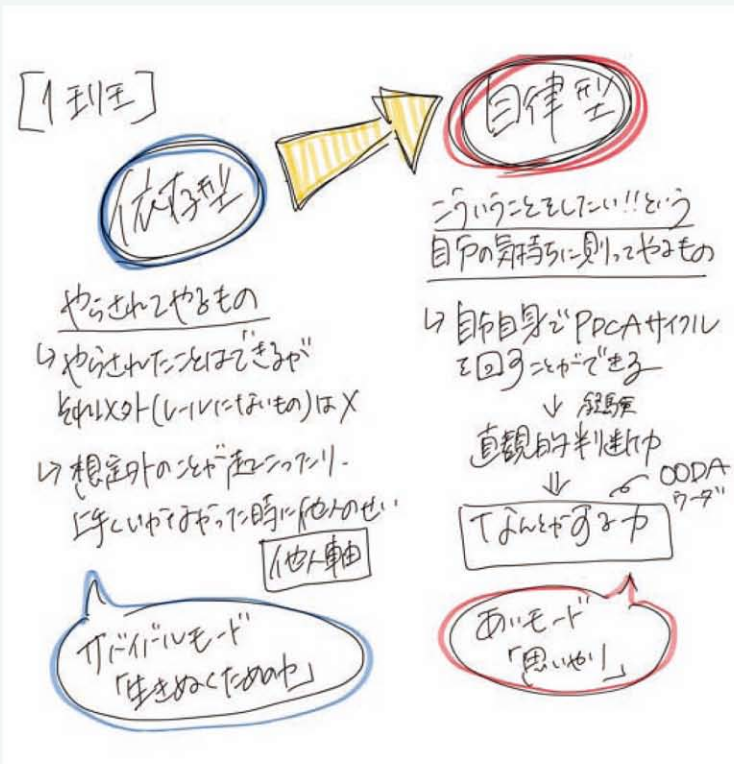 [1班]
依存型
やらされてやるもの
↳ やらされたことはできるが
それ以外(レールにないもの)は×
↳ 想定外のことが起こったり、
上手くいかなかった時に他人のせい
他人軸
サバイバルモード
「生きぬくための力」
自律型
こういうことをしたい!!という
自分の気持ちに則ってやるもの
↳ 自分自身でPDCAサイクル
を回すことができる
↓ 経験
直観的判断力
⇓
OODA
ウーダ
なんとかする力
あいモード
「思いやり」